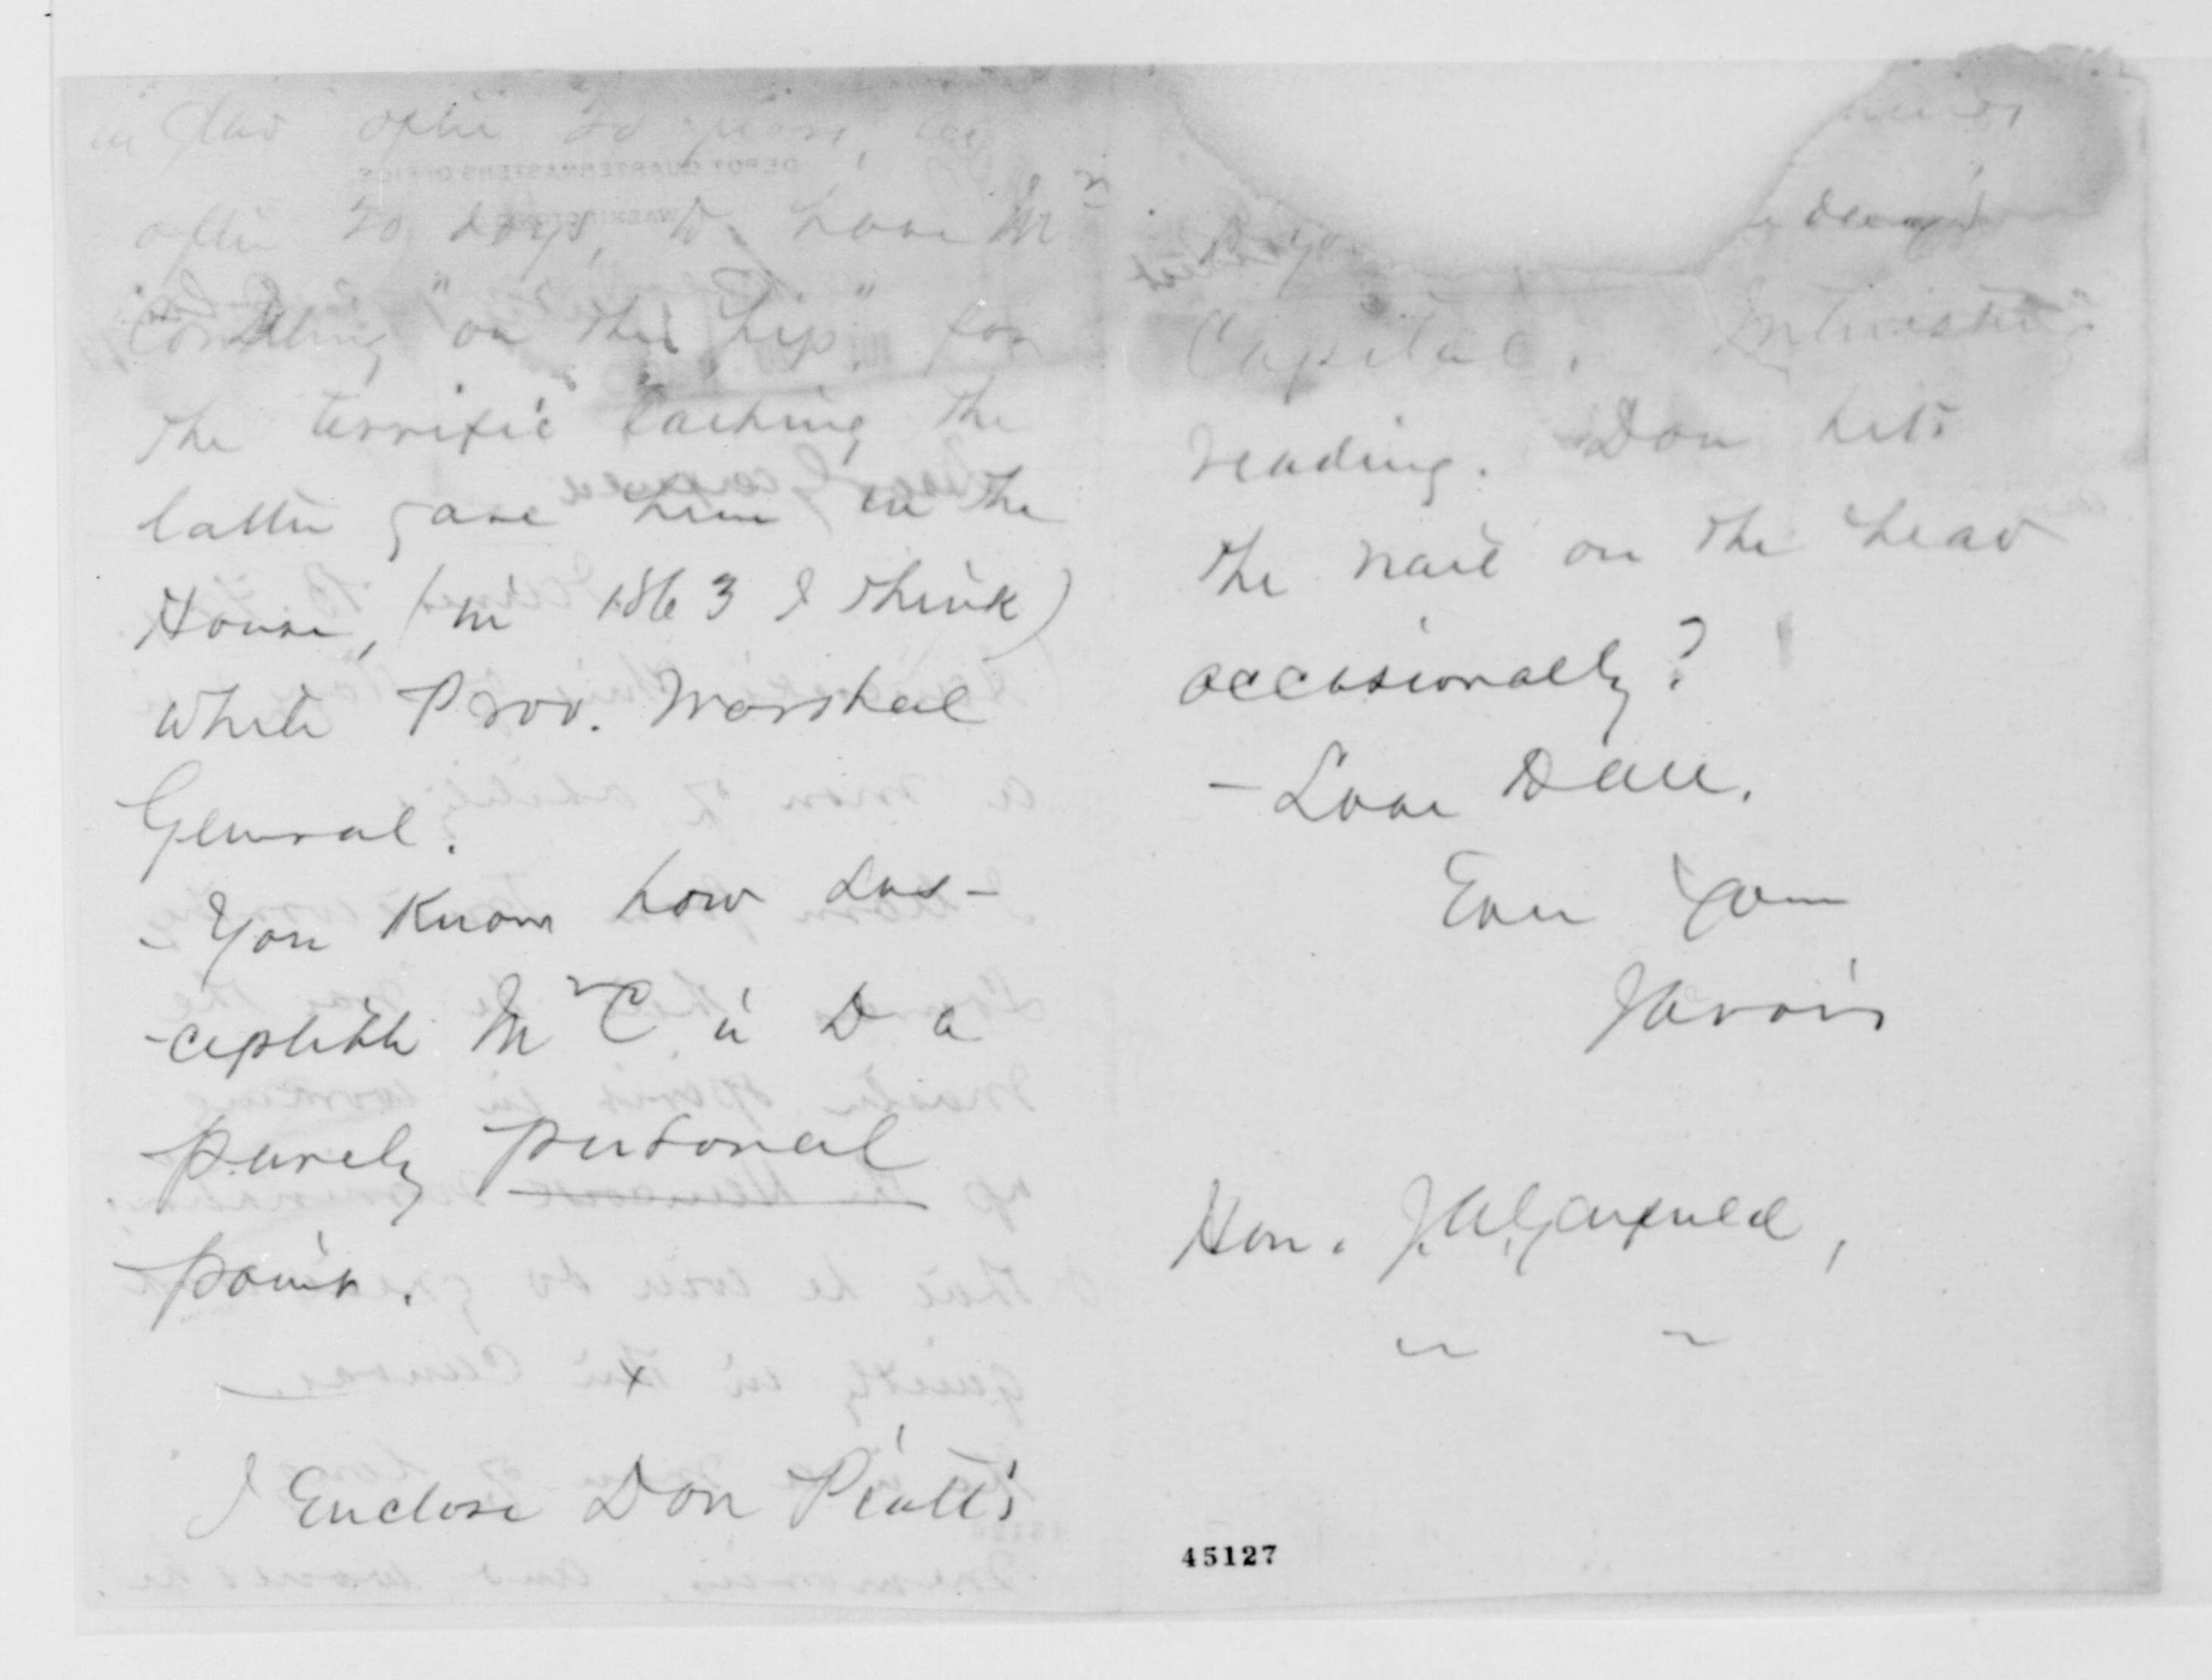 glad after 20 years, as
after 20 days, to have Mr
Conkling "on the hip" for
the terrific lashing the
latter gave him in the
House, (in 1863 I think)
while Prov. Marshal
General.
- You know how sus-
-ceptible Mr C is to a
purely personal
point.
I Enclose Don Piatt's
Capital. Interesting
reading. Don hits
the nail on the head
occasionally?
- Love Dall.
Ever Your
Jarvis
Hon. J.A. Garfield,
45127